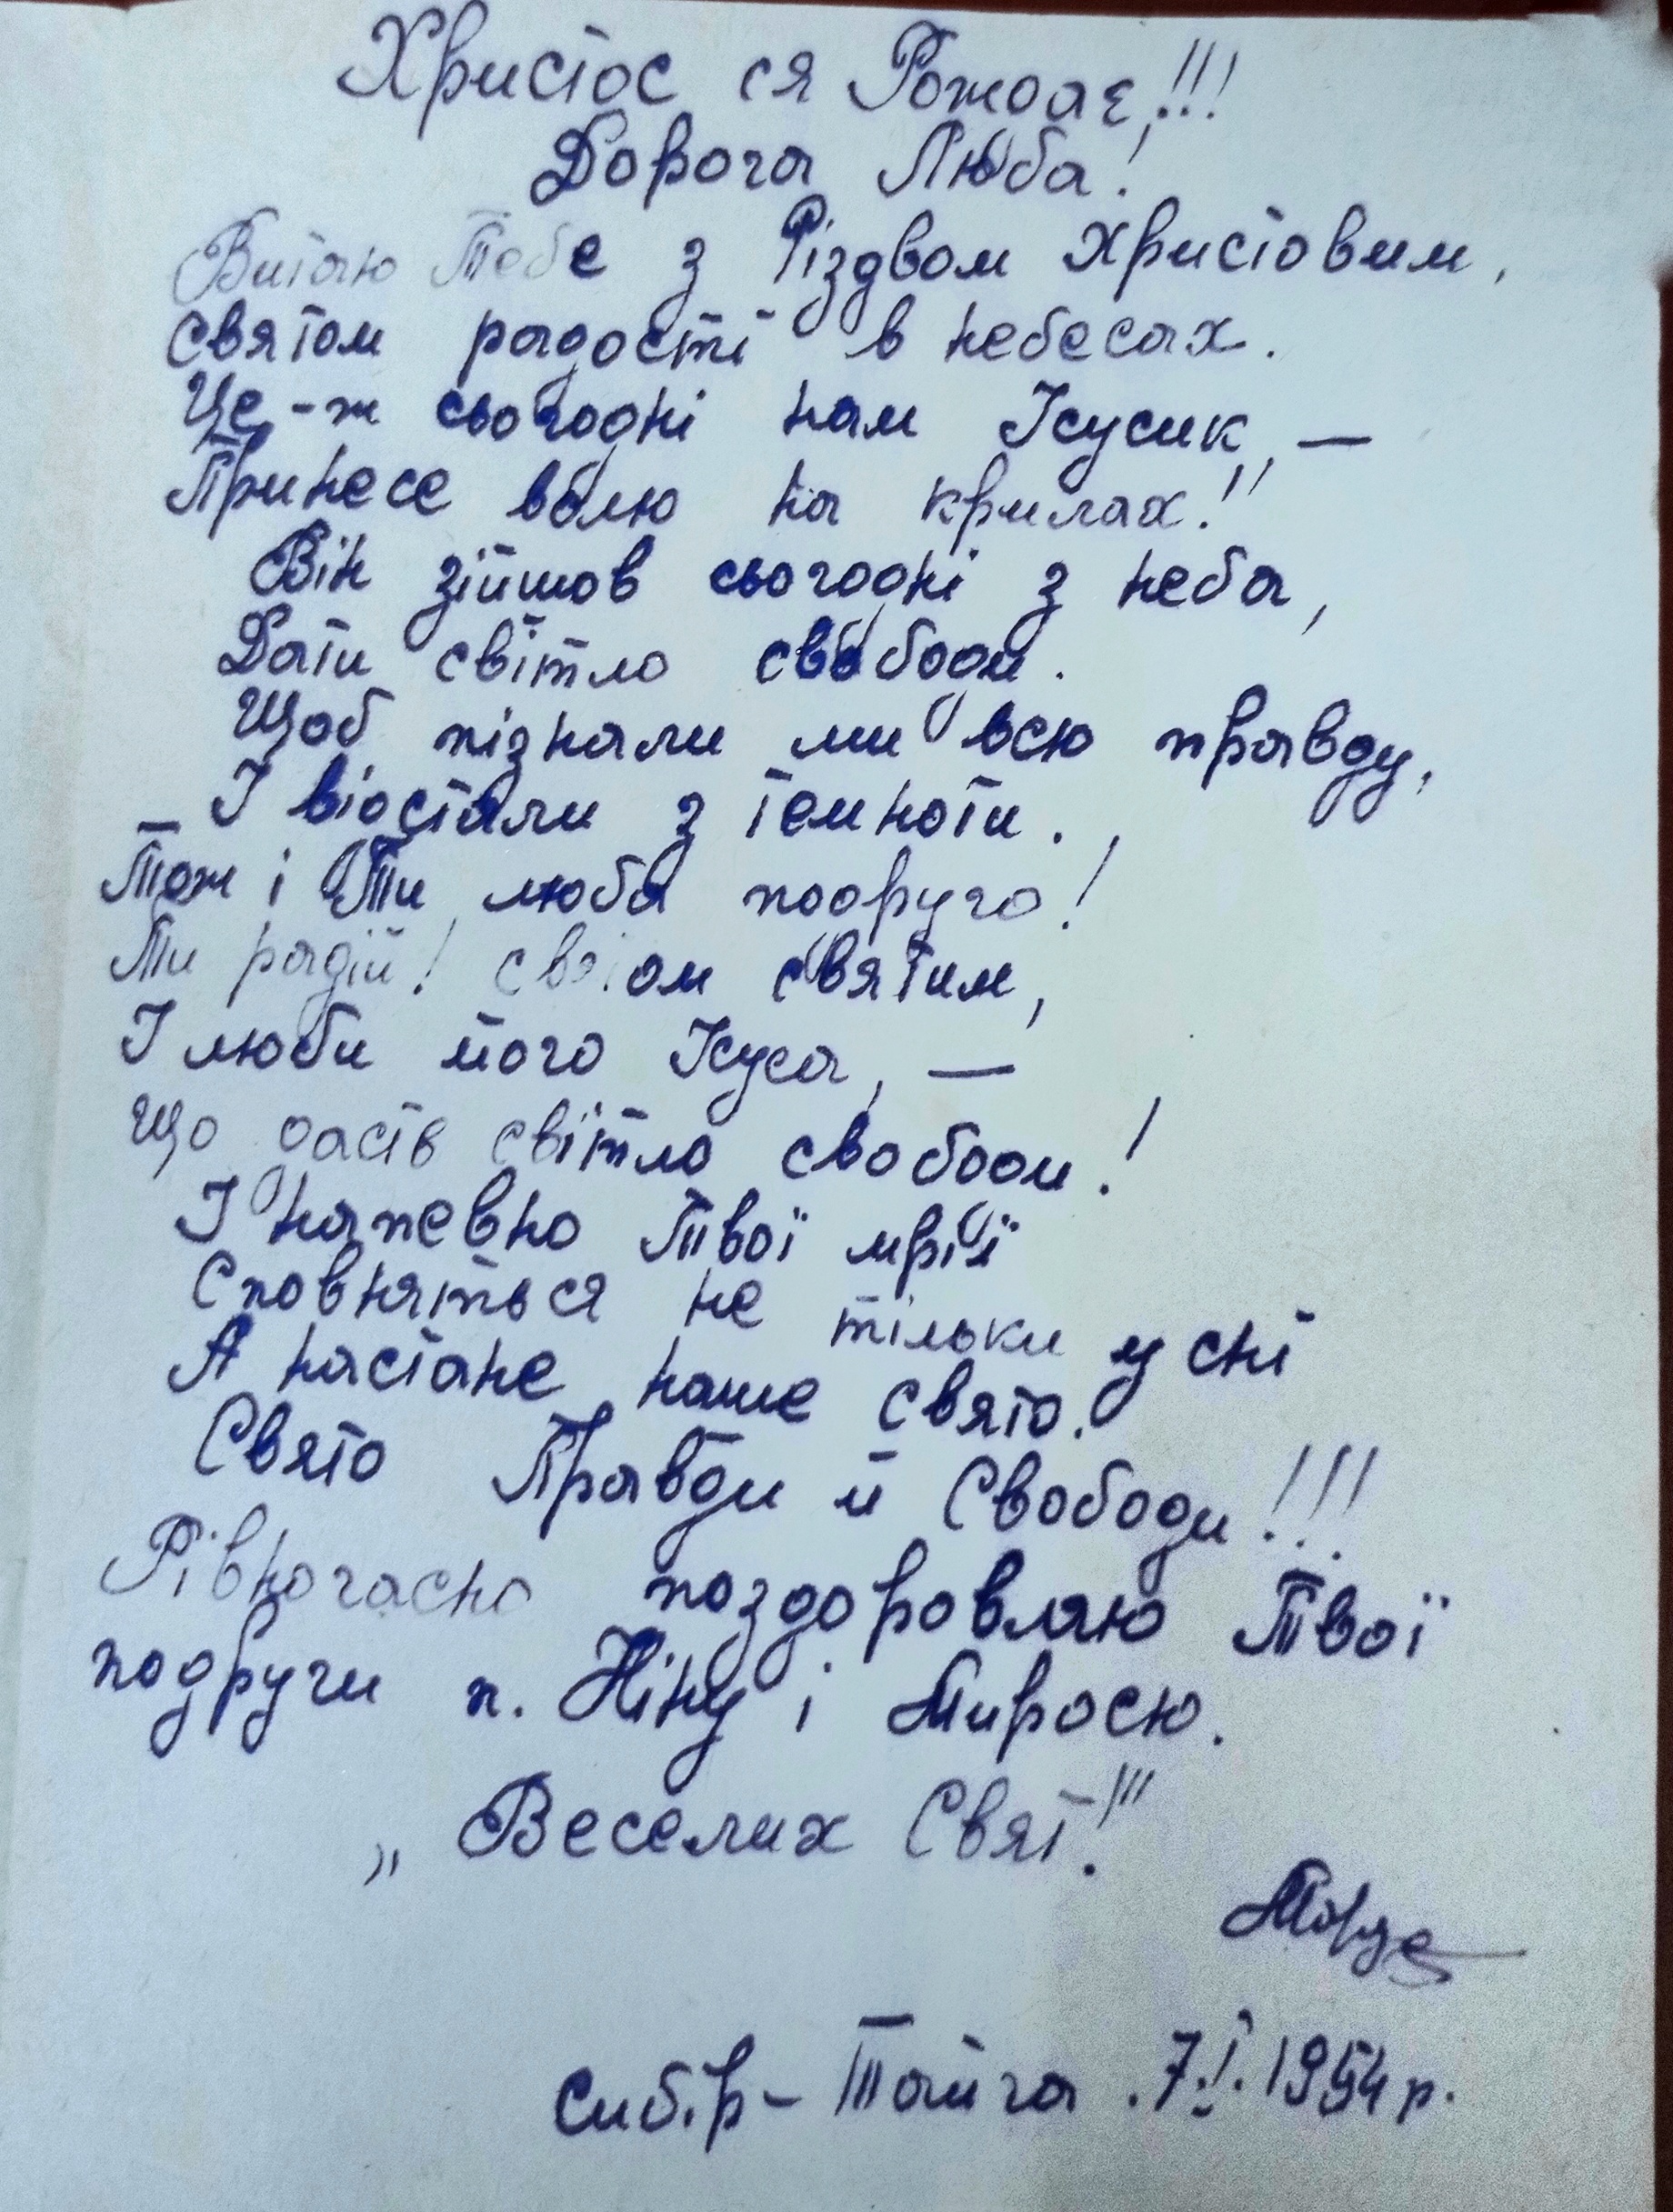 Христос ся Рождає!!!
Дорога Люба!
Витаю Тебе з Різдвом Христовим,
святом радости в небесах.
Це-ж сьогодні нам Ісусик, —
Принесе волю на крилах!"
Він зійшов сьогодні з неба,
Дати світло свободи.
Щоб пізнали ми всю правду,
І відстали з темноти.
Тож і Ти, люба подруго!
Ти радій! святом святим,
І люби його Ісуса, —
Що дасть світло свободи!
І напевно Твої мрії
Сповняться не тільки у сні
А настане наше свято.
Свято Правди й Свободи!!!
Рівночасно поздоровляю Твої
подруги п. Ніну і Миросю.
„Веселих Свят!"
Сибір – Тайга. 7.І.1954 р.